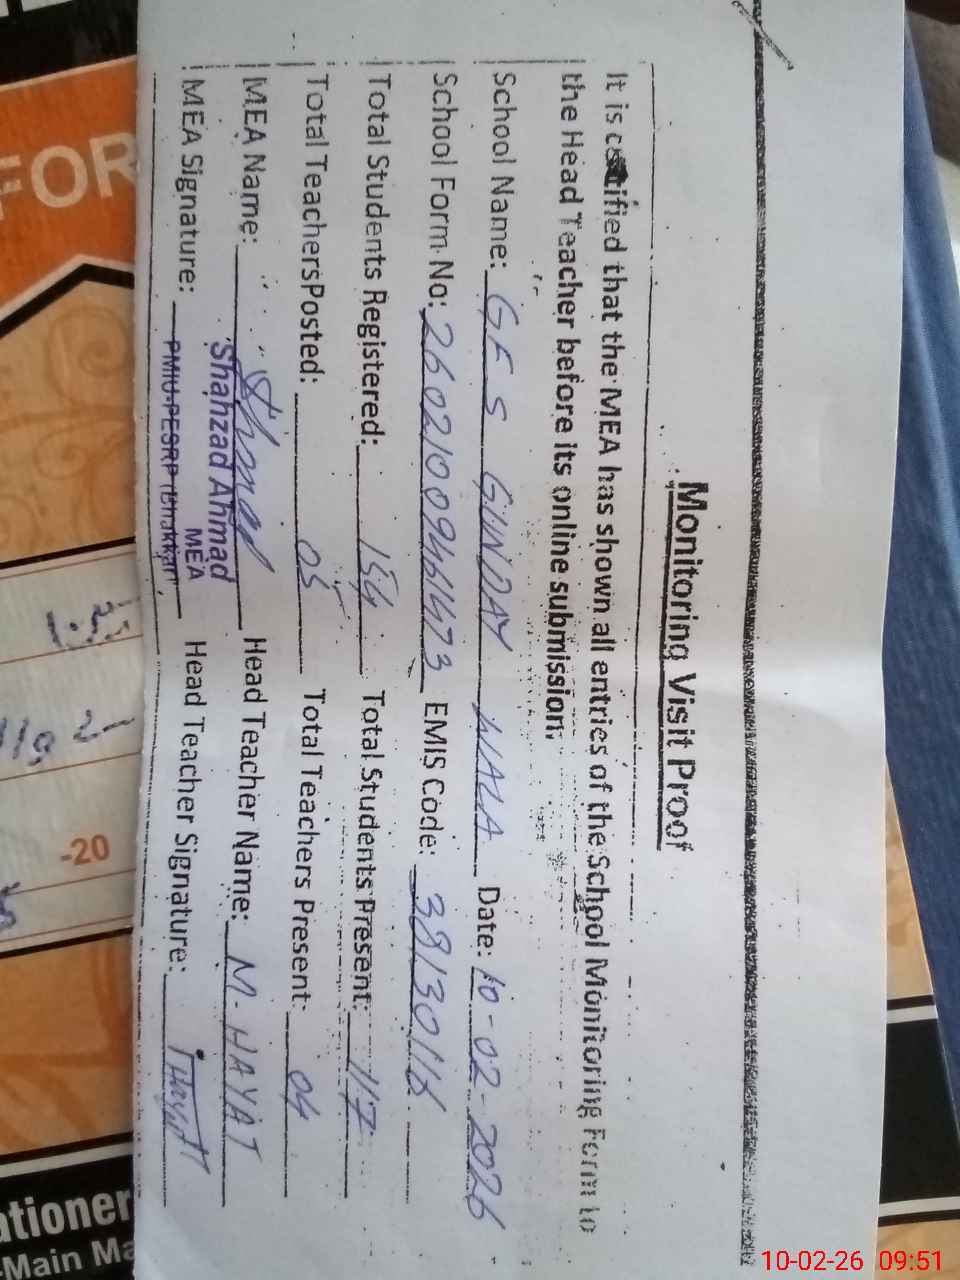 Monitoring Visit Proof
It is certified that the MEA has shown all entries of the School Monitoring Form to
the Head Teacher before its online submission.
School Name: GES GUNDAY WALA Date: 10-02-2026
School Form No: 2602100946473 EMIS Code:
Total Students Registered: 154 Total Students Present: 117
Total TeachersPosted: 05 Total Teachers Present: 04
MEA Name: Ahmad Head Teacher Name: M. HAYAT
Shahzad Ahmad
MEA
MEA Signature: PMIU-PESRP (Bhakkar) Head Teacher Signature:
FOR
-20
-Main Ma
10-02-26 09:51